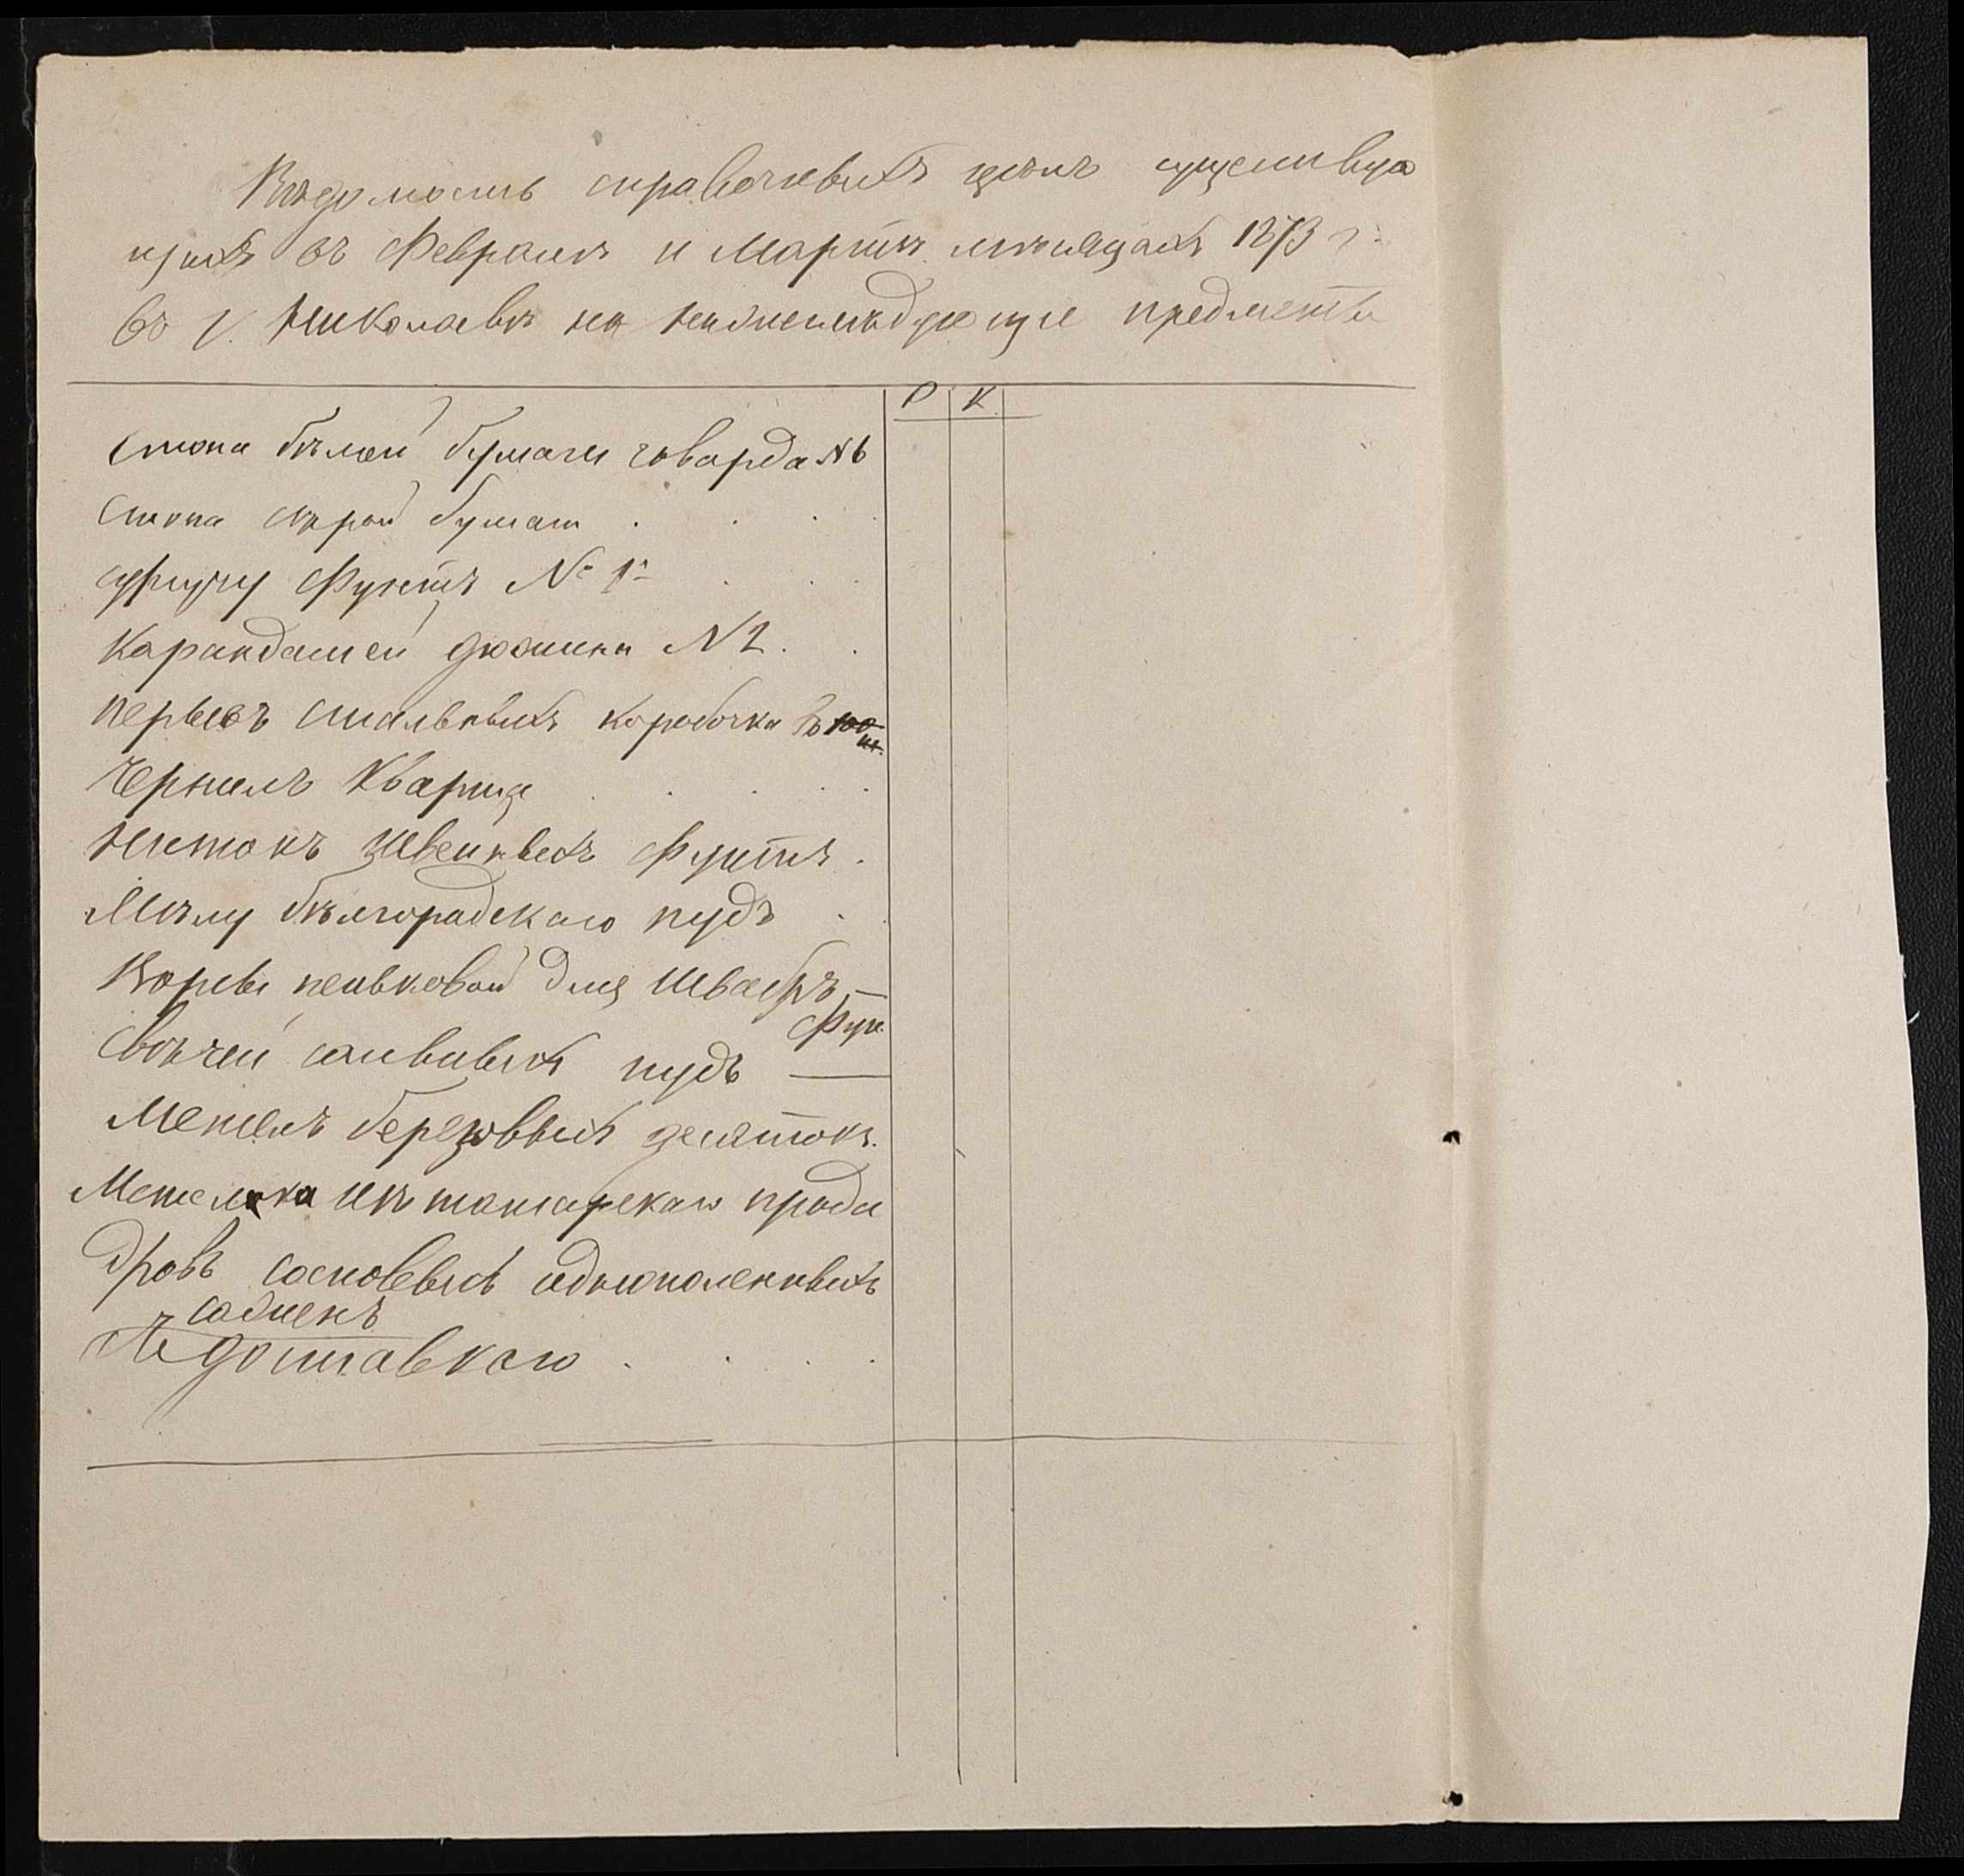 Вѣдомость справочныхъ цѣнъ существую
щихъ въ Февралѣ и Мартѣ мѣсяцахъ 1873 г.
въ г. Николаевѣ на нижеслѣдующіе предметы
Р К
Стопа бѣлой бумаги говарда № 6
Стопа сѣрой бумаги
сургучу Фунтъ № 1й
Карандашей дюжина № 2.
перьевъ стальныхъ коробочка въ 100 шт.
Чернилъ Кварта
Нитокъ швейныхъ Фунтъ.
Мѣлу бѣлгорадскаго пудъ
Ворсы пеньковой для Швабръ —
Фун.
Свѣчей сальныхъ пудъ —
Метелъ березовыхъ десятокъ.
Метелка изъ татарскаго проса
Дровъ сосновыхъ однополенныхъ
сажень
съ доставкою